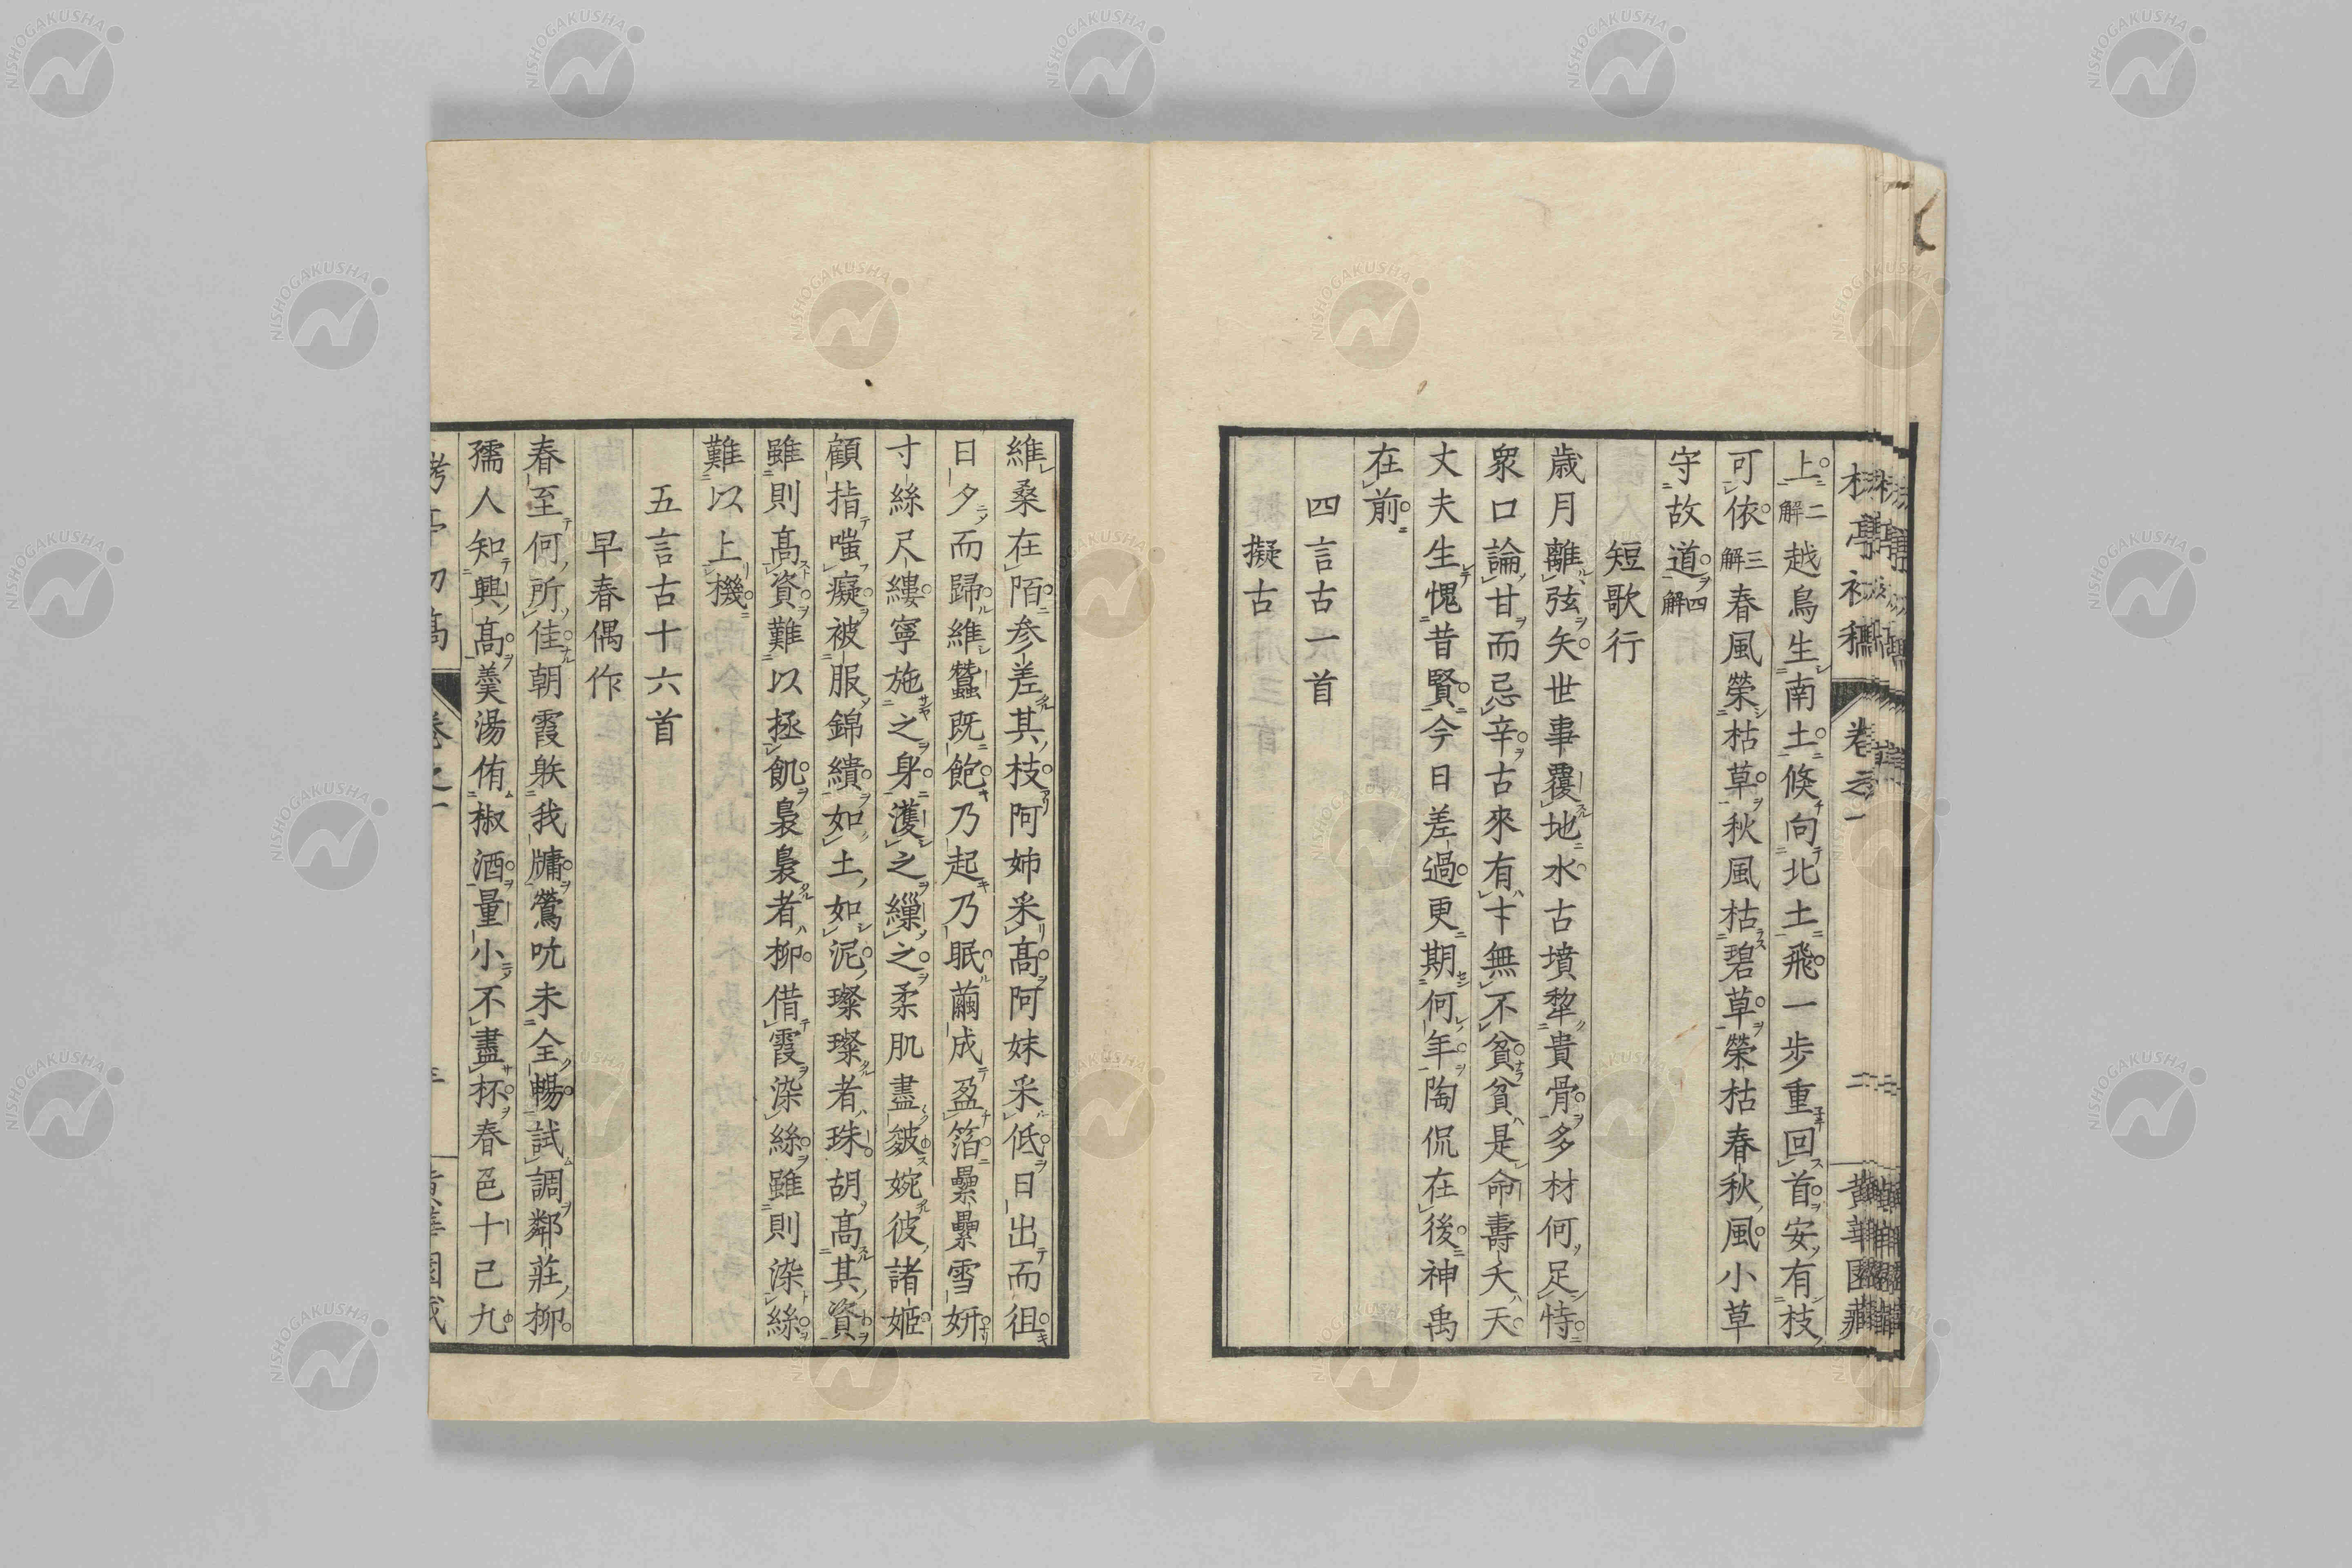 上二解越鳥生南土倐向北土飛一步重回首安有枝
可依三解春風榮枯草秋風枯碧草榮枯春秋風小草
守故道四解
短歌行
歲月離弦矢世事覆地水古墳犂貴骨多材何足恃
衆口論甘而忌辛古來有十無不貧貧是命壽夭天
丈夫生愧昔賢今日差過更期何年陶侃在後神禹
在前
四言古一首
擬古
維桑在陌參差其枝阿姉采高阿妹采低日出而徂
日夕而歸維蠶既飽乃起乃眠繭成盈箔纍纍雪妍
寸絲尺縷寧施之身濩之繅之柔肌盡皴婉彼諸姬
顧指嗤癡被服錦繢如土如泥璨璨者珠胡高其資
雖則高資難以拯飢裊裊者柳借霞染絲雖則染絲
難以上機
五言古十六首
早春偶作
春至何所佳朝霞躾我牗鶯吭未全暢試調鄰莊柳
孺人知興高羹湯侑椒酒量小不盡杯春色十已九
卷之一
二
黄華園藏
NISHOGAKUSHA